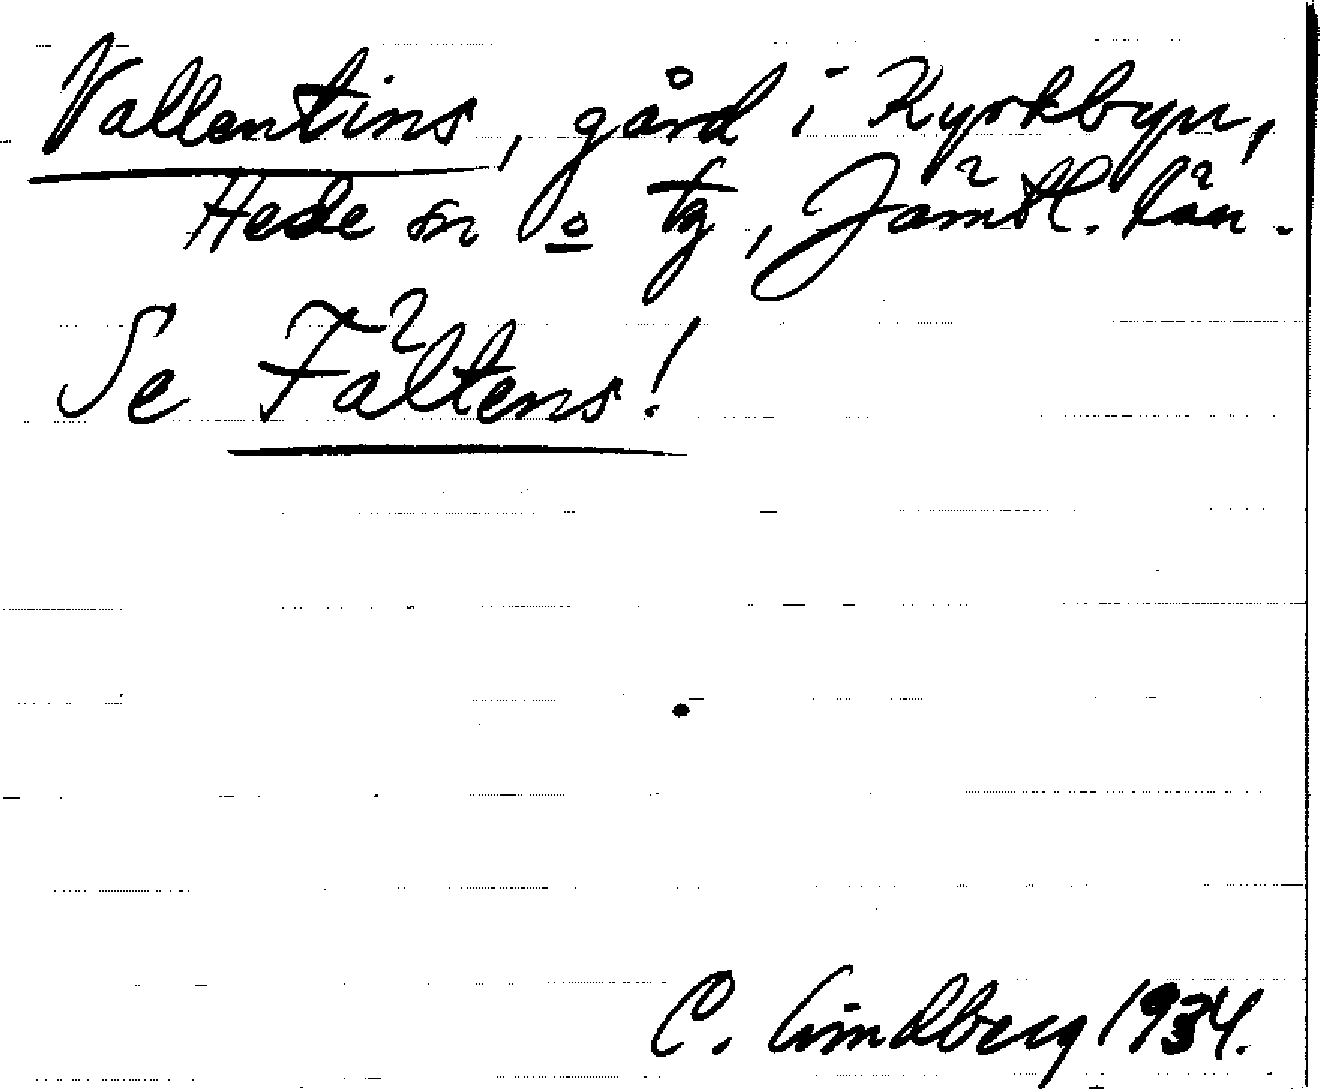 Vallentins, gård i Kyrkbyn,
Hede sn o tg, Jämtl. län.
Se Fältens!
C. Lindberg 1934.